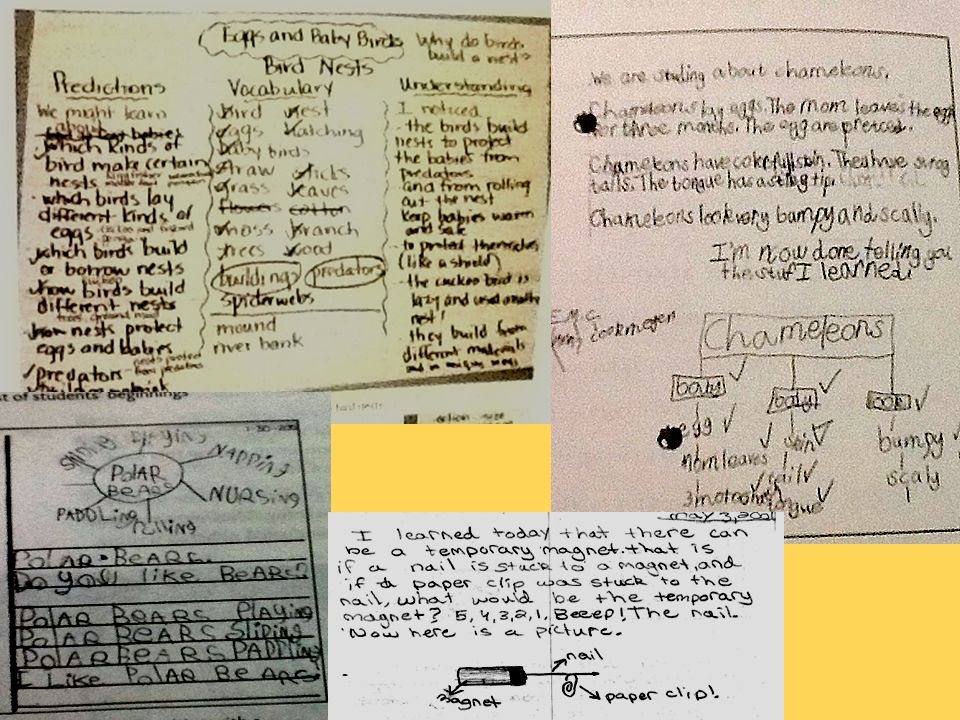 Eggs and Baby Birds
Why do birds
build a nest?
Bird Nests
Predictions
We might learn
which kinds of
bird make certain
nests
which birds lay
different kinds of
eggs
which birds build
or borrow nests
how birds build
different nests
how nests protect
eggs and babies
predators
Vocabulary
bird nest
eggs hatching
baby birds
straw sticks
grass leaves
flowers cotton
moss branch
trees wood
buildings predators
spiderwebs
mound
river bank
Understanding
I noticed
the birds build
nests to protect
the babies from
predators
and from rolling
out the nest
keep babies warm
and safe
to protect themselves
(like a shield)
the cuckoo bird is
lazy and used another
nest!
they build from
different materials
We are studing about chameleons.
Chameleons lay eggs. The mom leaves the egg
for three months. The egg are
Chameleons have colerfull skin. They have strong
tails. The tongue has a tip.
Chameleons look very bumpy and scally.
I'm now done telling you
the stuf I learned.
Chameleons
baby
body
look
egg
mom leaves
3 months
skin
tail
tongue
bumpy
scaly
of students' beginnings
PolAR
BeARS
PlAYiNg
NAPPiNg
NURSiNg
PADDLiNg
PolAR BeARS.
Do you like BeARS?
PolAR BeARS PlAYiNg
PolAR BeARS SliDiNg
PolAR BeARS PADDliNg
I like PolAR BeARS
May 3, 2001
I learned today that there can
be a temporary magnet. that is
if a nail is stuck to a magnet, and
if a paper clip was stuck to the
nail, what would be the temporary
magnet? 5, 4, 3, 2, 1, Beeep! The nail.
Now here is a picture.
nail
magnet
paper clip!